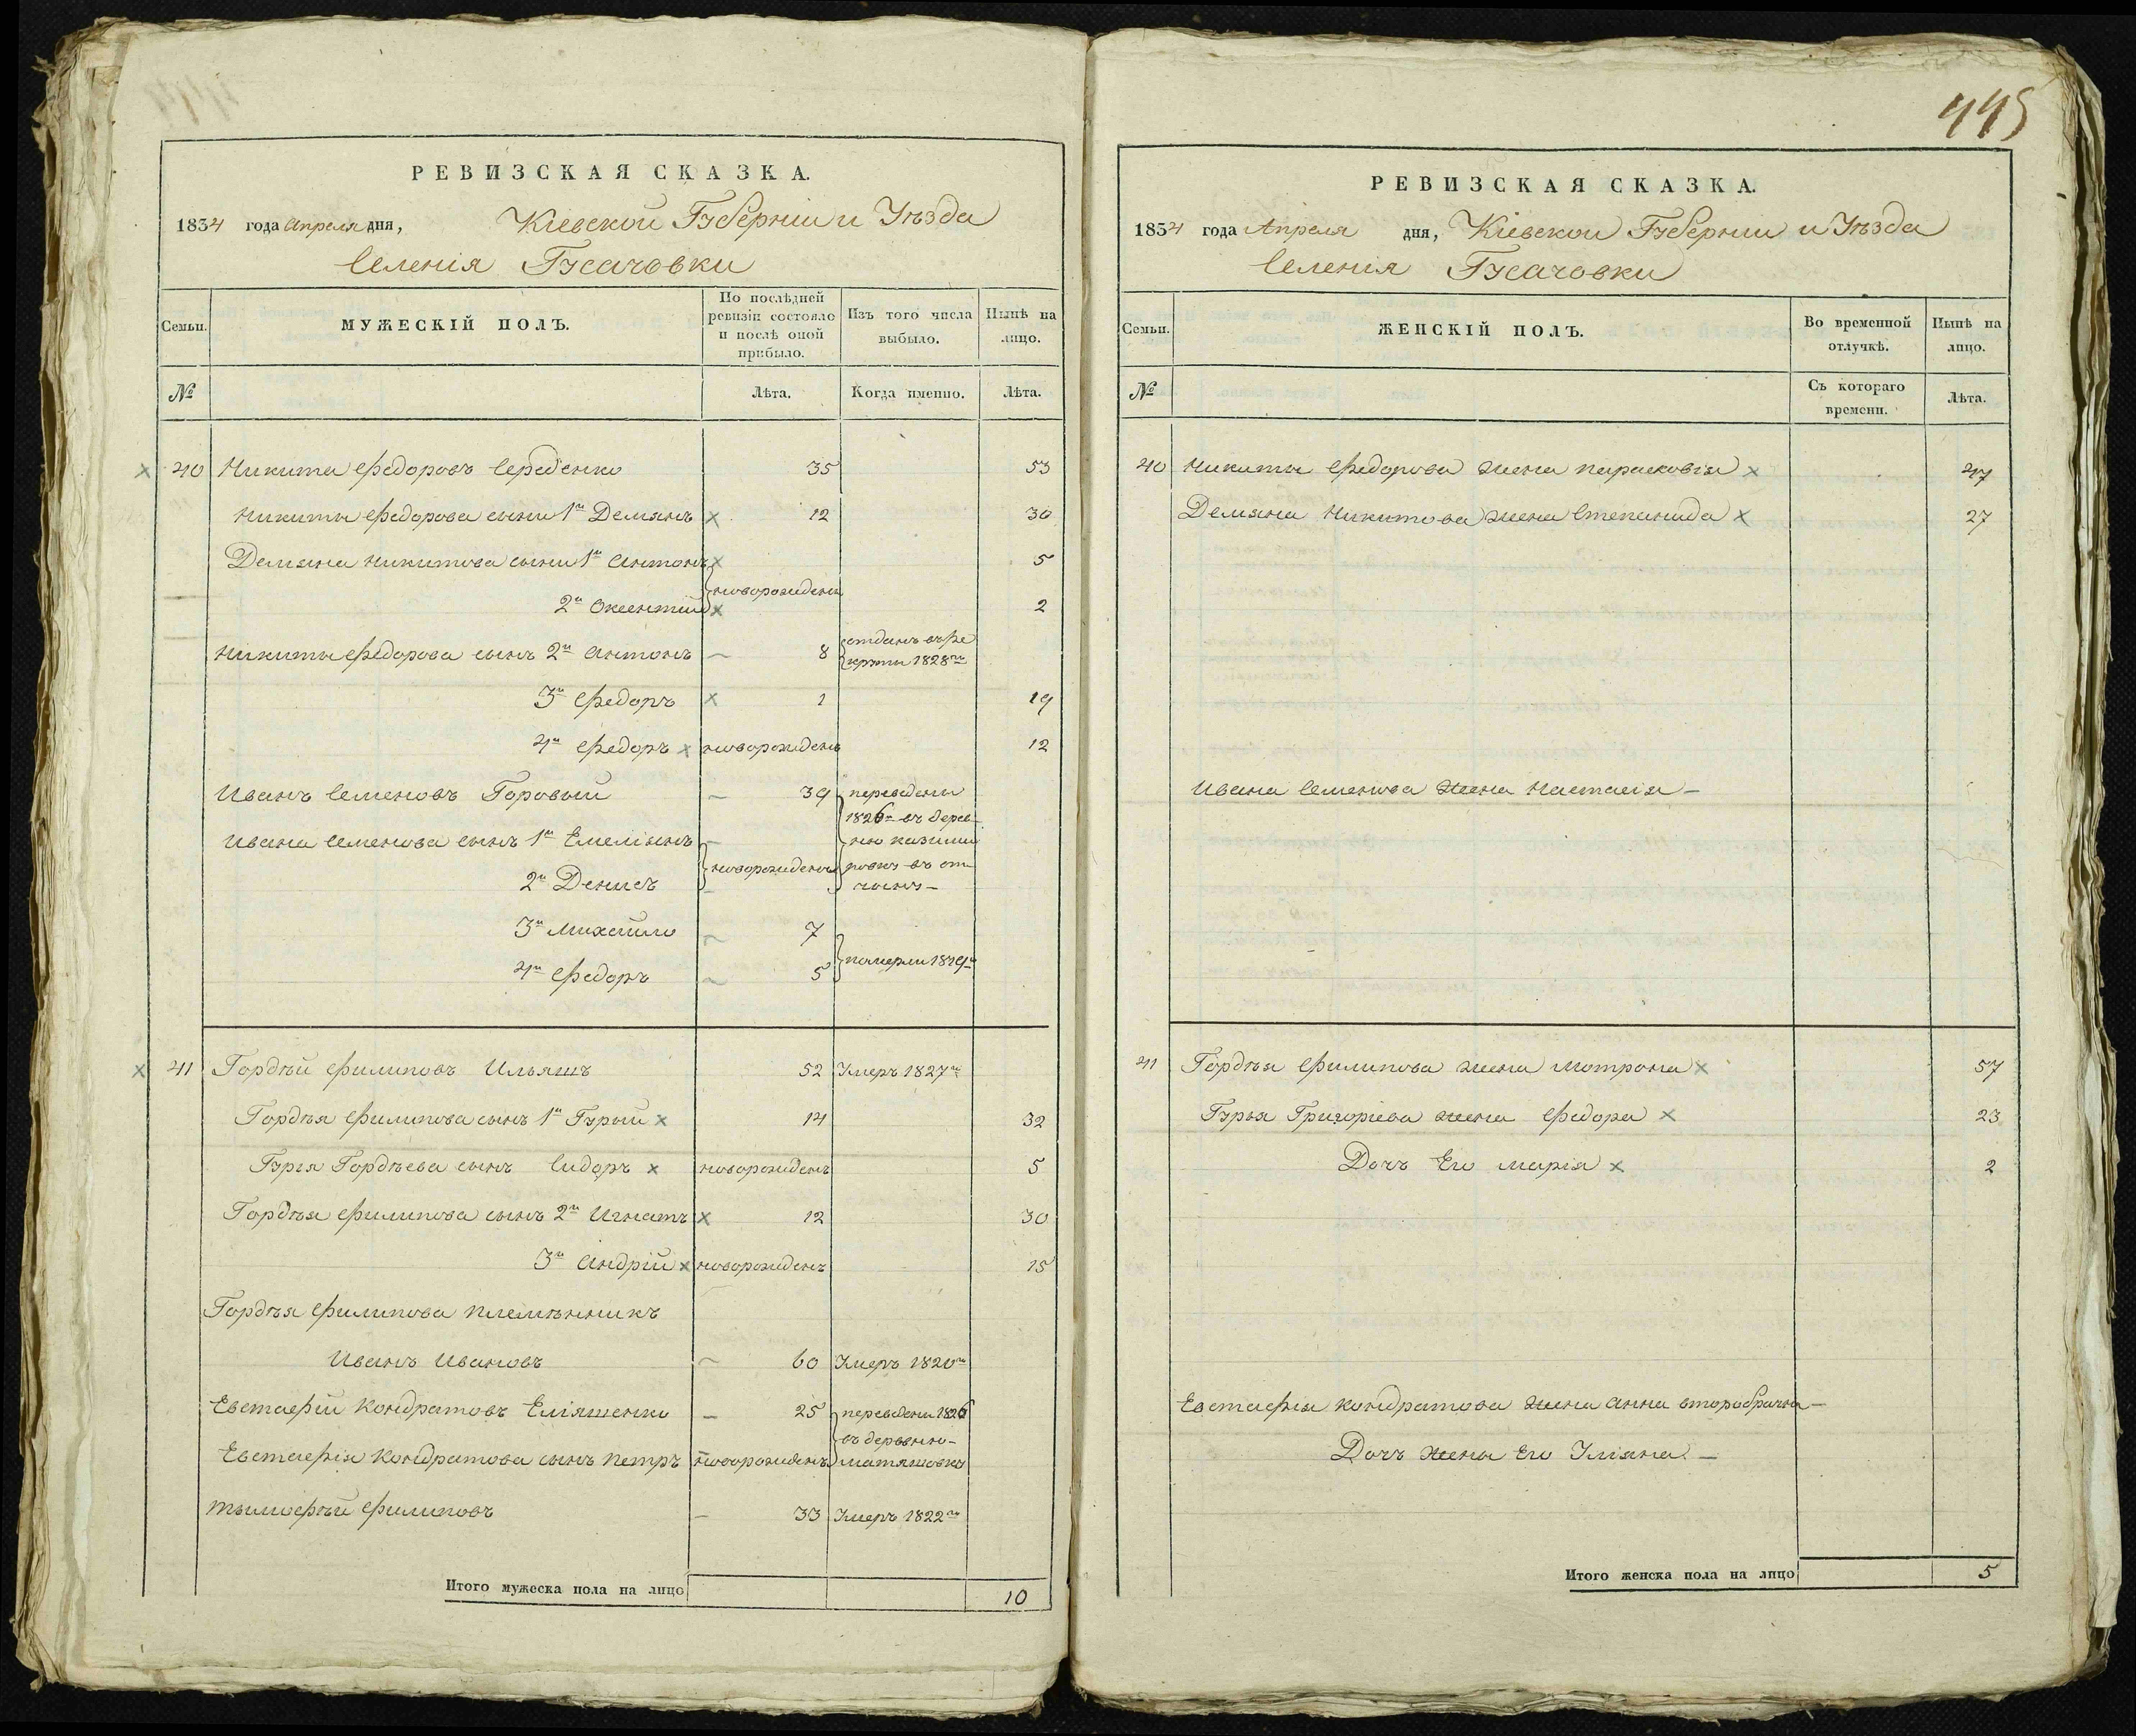 РЕВИЗСКАЯ СКАЗКА.
1834 года Апреля дня, Кіевской Губерніи и Уѣзда
Селенія Гусачовки
Семьи. МУЖЕСКІЙ ПОЛЪ. По послѣдней ревизіи состояло и послѣ оной прибыло. Изъ того числа выбыло. Нынѣ на лицо.
№ Лѣта. Когда именно. Лѣта.
40 Никита Федоровъ Середенко 35 53
Никиты Федорова сыни 1й Демянъ 12 30
Демяна Никитова сыни 1й Антонъ 5
новорождены
2й Оксентий 2
Никиты Федорова сынъ 2й Антонъ 8 отданъ въ ре
круты 1828го
3й Федоръ 1 19
4й Федоръ новорожденъ 12
Иванъ Семеновъ Горовый 39 переведены
1826го въ дерев
Ивана Семенова сынъ 1й Емелiянъ ню казими
новорожденъ ровку въ от
2й Денисъ чыну
3й Михайло 7
померли 1819го
4й Федоръ 5
41 Гордѣй Филиповъ Ильяшъ 52 Умеръ 1827го
Гордѣя Филипова сынъ 1й Гурый 14 32
Гурія Гордѣева сынъ Сидоръ новорожденъ 5
Гордѣя Филипова сынъ 2й Игнатъ 12 30
3й Андрій новорожденъ 15
Гордѣя Филипова племѣнникъ
Иванъ Ивановъ 60 Умеръ 1820го
Евстафій Кондратовъ Еліяшенко 25 переведены 1826
въ деревню
Евстафія Кондратова сынъ Петръ новорожденъ матяшовку
Тымофѣй Филиповъ 33 Умеръ 1822го
Итого мужеска пола на лицо 10
445
РЕВИЗСКАЯ СКАЗКА.
1834 года Апреля дня, Кіевской Губерніи и Уѣзда
Селенія Гусачовки
Семьи. ЖЕНСКІЙ ПОЛЪ. Во временной отлучкѣ. Нынѣ на лицо.
№ Съ котораго времени. Лѣта.
40 Никиты Федорова жена Парасковія 47
Демяна Никитова жена Степанида 27
Ивана Семенова жена Настасія
41 Гордѣя Филипова жена Мотрона 57
Гурья Григоріева жена Федора 23
Дочъ Его Марія 2
Евстафія Кондратова жена Анна второбрачна
Дочъ жены Его Уліяна
Итого женска пола на лицо 5